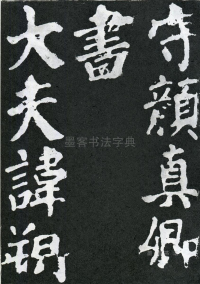 守顏真卿
書
大夫諱朔
墨客书法字典